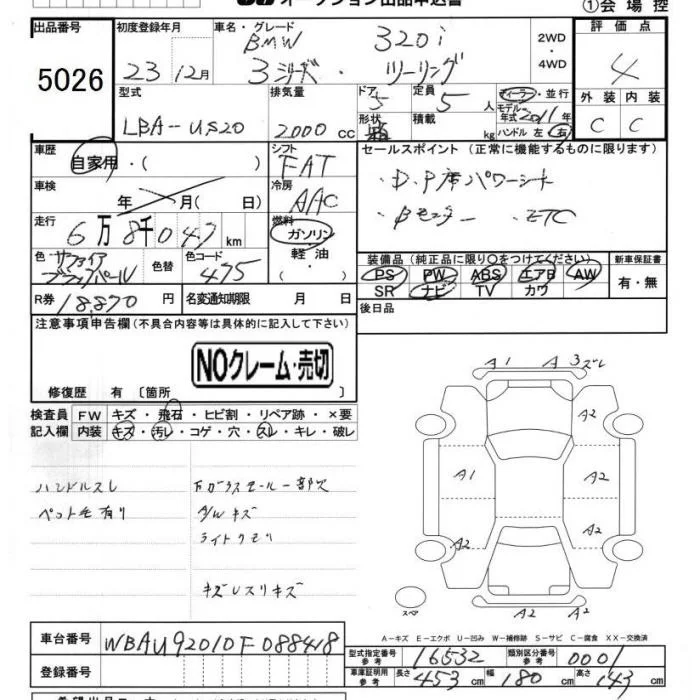 オークション出品申込書
①会場控
出品番号
5026
初度登録年月
23年12月
車名・グレード
BMW 320i
3シリーズ・ツーリング
2WD
・
4WD
評価点
4
外装 内装
C C
型式
LBA-US20
排気量
2000 cc
ドア
5
形状
定員
5人
積載
kg
ディーラー・並行
モデル年式 2011年
ハンドル 左 右
車歴
自家用・( )
シフト
FAT
セールスポイント(正常に機能するものに限ります)
・D.P席パワーシート
・Bモニター ・ETC
車検
年 月( 日)
冷房
AAC
走行
6万8千047km
燃料
ガソリン
軽油
・( )
色
サファイア
ブラックパール
色替
色コード
475
装備品(純正品に限り○をつけてください)
PS PW ABS エアB AW
SR ナビ TV カワ
新車保証書
有・無
R券 18,870円
名変通知期限 月 日
後日品
注意事項申告欄(不具合内容等は具体的に記入して下さい)
NOクレーム・売切
修復歴 有〔箇所 〕
検査員
記入欄
FW キズ・飛石・ヒビ割・リペア跡・×要
内装 キズ・汚レ・コゲ・穴・スレ・キレ・破レ
ハンドルスレ
ペット毛有り
A/Wキズ
ライトクモリ
キズレスリキズ
A1 A3 ズレ
A2
A1 A2
A2 A2
A2 A2
スペア
A-キズ E-エクボ U-凹み W-補修跡 S-サビ C-腐食 XX-交換済
車台番号
WBAU92010F088418
登録番号
型式指定番号
参考
16532
類別区分番号
参考
0001
車庫証明用
参考
長さ 453cm 幅 180cm 高さ 143cm